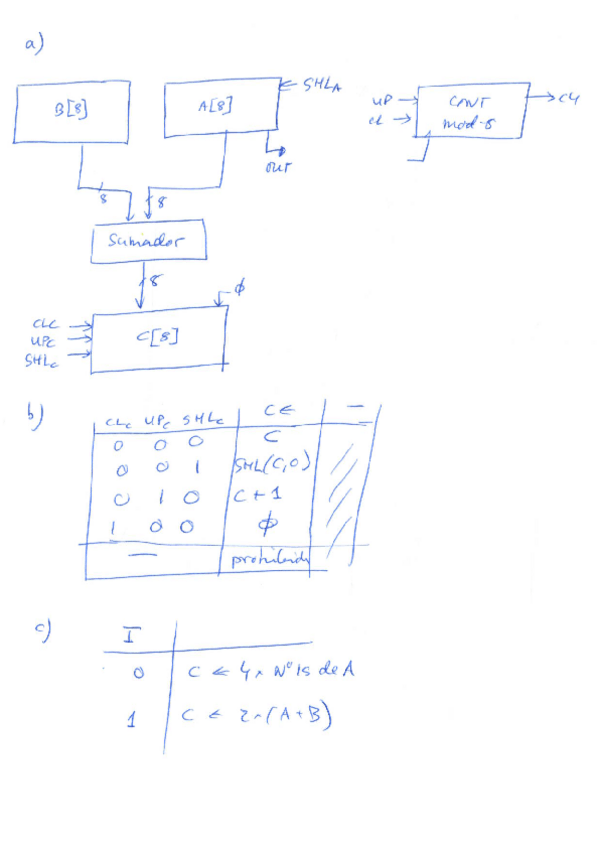 a)
B[8]
A[8]
SHLA
OUT
UP
CL
CONT
mod-8
C4
8
8
Sumador
8
ϕ
CLC
UPC
SHLC
C[8]
b)
CLC UPC SHLC C← —
0 0 0 C
0 0 1 SHL(C,0)
0 1 0 C+1
1 0 0 ϕ
— prohibido
c)
I
0 C ← 4 × Nº 1s de A
1 C ← 2×(A+B)